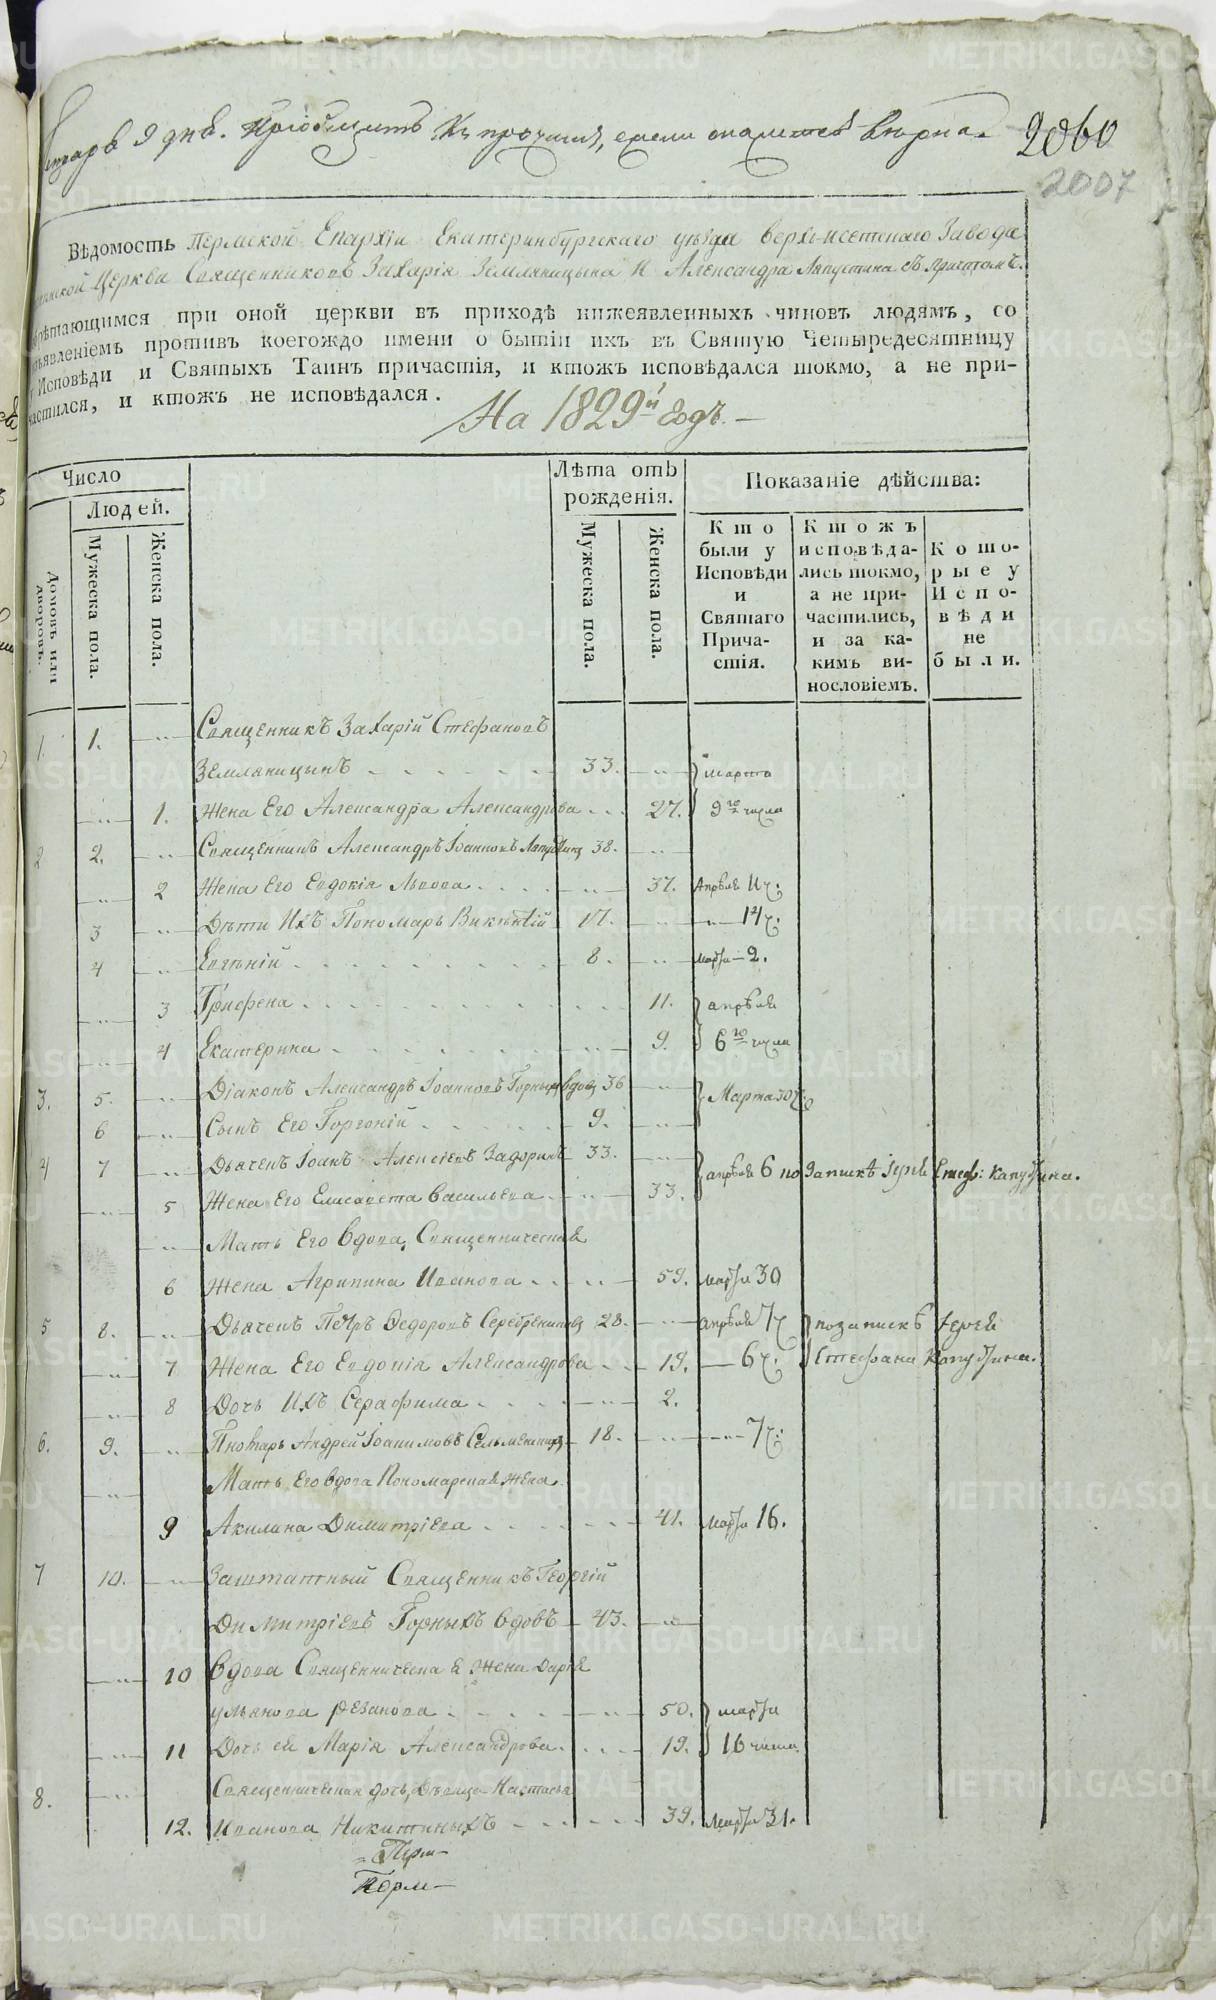 9 дня. Пріобщить къ прочимъ, ежели окажется вѣрна.
2060
2007
Вѣдомость Пермской Епархіи Екатеринбургскаго уѣзда Верхъ-исетскаго Завода
Церкви Священниковъ Захаріа Земляницына и Александра Ляпустина съ причтомъ.
при оной церкви въ приходѣ нижеявленныхъ чиновъ людямъ, со
изъявленіемъ противъ коегождо имени о бытіи ихъ въ Святую Четыредесятницу
у Исповѣди и Святыхъ Таинъ причастія, и ктожъ исповѣдался токмо, а не при-
частился, и ктожъ не исповѣдался.
На 1829й годъ.
Число
Людей.
Домовъ или дворовъ.
Мужеска пола.
Женска пола.
Лѣта отъ
рожденія.
Мужеска пола.
Женска пола.
Показаніе дѣйства:
Кто
были у
Исповѣди
и
Святаго
Прича-
стія.
Ктожъ
исповѣда-
лись токмо,
а не при-
частились,
и за ка-
кимъ ви-
нословіемъ.
Кото-
рые у
Испо-
вѣди
не
были.
1. 1. Священникъ Захарій Стефановъ
Земляницынъ 33. марта
1. Жена Его Александра Александрова 27. 9го числа
2 2. Священникъ Александръ Іоанновъ Ляпустинъ 38.
2 Жена Его Евдокія Львова 37. Апрѣля 11 ч.
3 Дѣти Ихъ Пономарь Викентій 17. 14 ч.
4 Евгеній 8. марта 2.
3 Трифена 11. апрѣля
4 Екатерина 9. 6го числа
3. 5. Діаконъ Александръ Іоанновъ Горныхъ вдовъ 36 Марта 30 ч.
6 Сынъ Его Горгоній 9.
4 7 Дьячекъ Іоанъ Алексіевъ Задоринъ 33. апрѣля 6 по запискѣ Іерея Стеф: Капустина.
5 Жена Его Елисавета Васильева 33.
Мать Его вдова, Священническая
6 Жена Агрипина Иванова 59. марта 30
5 8. Дьячекъ Петръ Федоровъ Серебренниковъ 28. апрѣля 7 ч по запискѣ Іерея
7 Жена Его Евдокія Александрова 19. 6 ч. Стефана Капустина.
8 Дочь Ихъ Серафима 2.
6. 9. Андрей Іоакимовъ 18. 7 ч.
Мать Его вдова Пономарская Жена
9 Акилина Димитріева 41. марта 16.
7 10. Заштатный Священникъ Георгій
Димитріевъ Горныхъ вдовъ 43.
10 Вдова Священническая Жена Дарія
ульянова Рязанова 50. марта
11 Дочь ея Марія Александрова 19. 16 числа
8. Священническая дочь, Дѣвица Настасья
12. Иванова Никитиныхъ 39. марта 31.